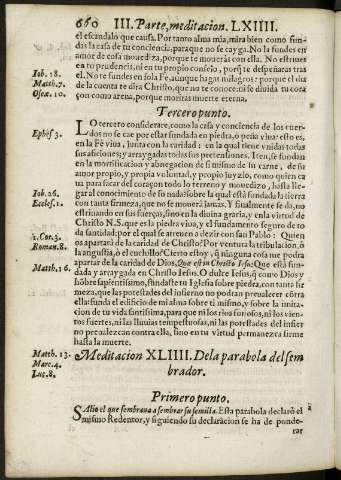 660 III. Parte, meditacion. LXIIII.
el escandalo que causa. Por tanto alma mia, mira bien como fun-
das la casa de tu conciencia, para que no se cayga. No la fundes en
amor de cosa mouediza, porque te moueràs con ella. No estriues
en tu prudencia, ni en tu propio consejo, porq̃ te despeñaras tras
Iob. 18. el. No te fundes en sola Fè, aũque hagas milagros: porque el dia
Matth. 7. de la cuenta te dira Christo, que no te conoce: ni se diuida tu cora
Oseæ. 10. çon como arena, porque moriras muerte eterna.
Tercero punto.
LO tercero considerare, como la casa y conciencia de los cuer-
dos no se cae por estar fundada en piedra, o peña viua: esto es,
Ephes. 3. en la Fè viua, junta con la caridad: en la qual tiene vnidas todas
sus aficiones; y arraygadas todas sus pretensiones. Iten, se fundan
en la mortificacion y abnegacion de si mismo de su carne, de su
amor propio, y propia voluntad, y propio juyzio, como quien ca
ua para sacar del coraçon todo lo terreno y mouedizo, hasta lle-
Iob. 26. gar al conocimiento de su nada: sobre la qual està fundada la tierra
Eccles. 1. con tanta firmeza, que no se mouerà jamas. Y finalmente se da, no
estriuando en sus fuerças, sino en la diuina gracia, y en la virtud de
Christo N. S. que es la piedra viua, y el fundamento seguro de to
1. Cor. 3. da santidad: por el qual se atreuen a dezir con san Pablo: Quien
Roman. 8. os apartarà de la caridad de Christo? Por ventura la tribulacion, ò
la angustia, ò el cuchillo? Cierto estoy, q̃ ninguna cosa me podra
Matth. 16. apartar de la caridad de Dios, Que està en Christo Iesus: Que està fun-
dada y arraygada en Christo Iesus. O dulce Iesus, q̃ como Dios y
hõbre sapientissimo, fundaste tu Iglesia sobre piedra, con tanta fir
meza, que las potestades del infierno no podran preualecer cõtra
ella: funda el edificio de mi alma sobre ti mismo, y sobre la imita-
cion de tu vida santissima, para que ni los rios furiosos, ni los vien-
tos fuertes, ni las lluuias tempestuosas, ni las potestades del infier
no preualezcan contra ella, sino en tu virtud permanezca firme
hasta la muerte.
Matth. 13. Meditacion XLIIII. De la parabola del sem
Marc. 4. brador.
Luc. 8.
Primero punto.
SAlio el que sembraua a sembrar su semilla. Esta parabola declarò el
mismo Redentor, y siguiendo su declaracion se ha de ponde-
rar